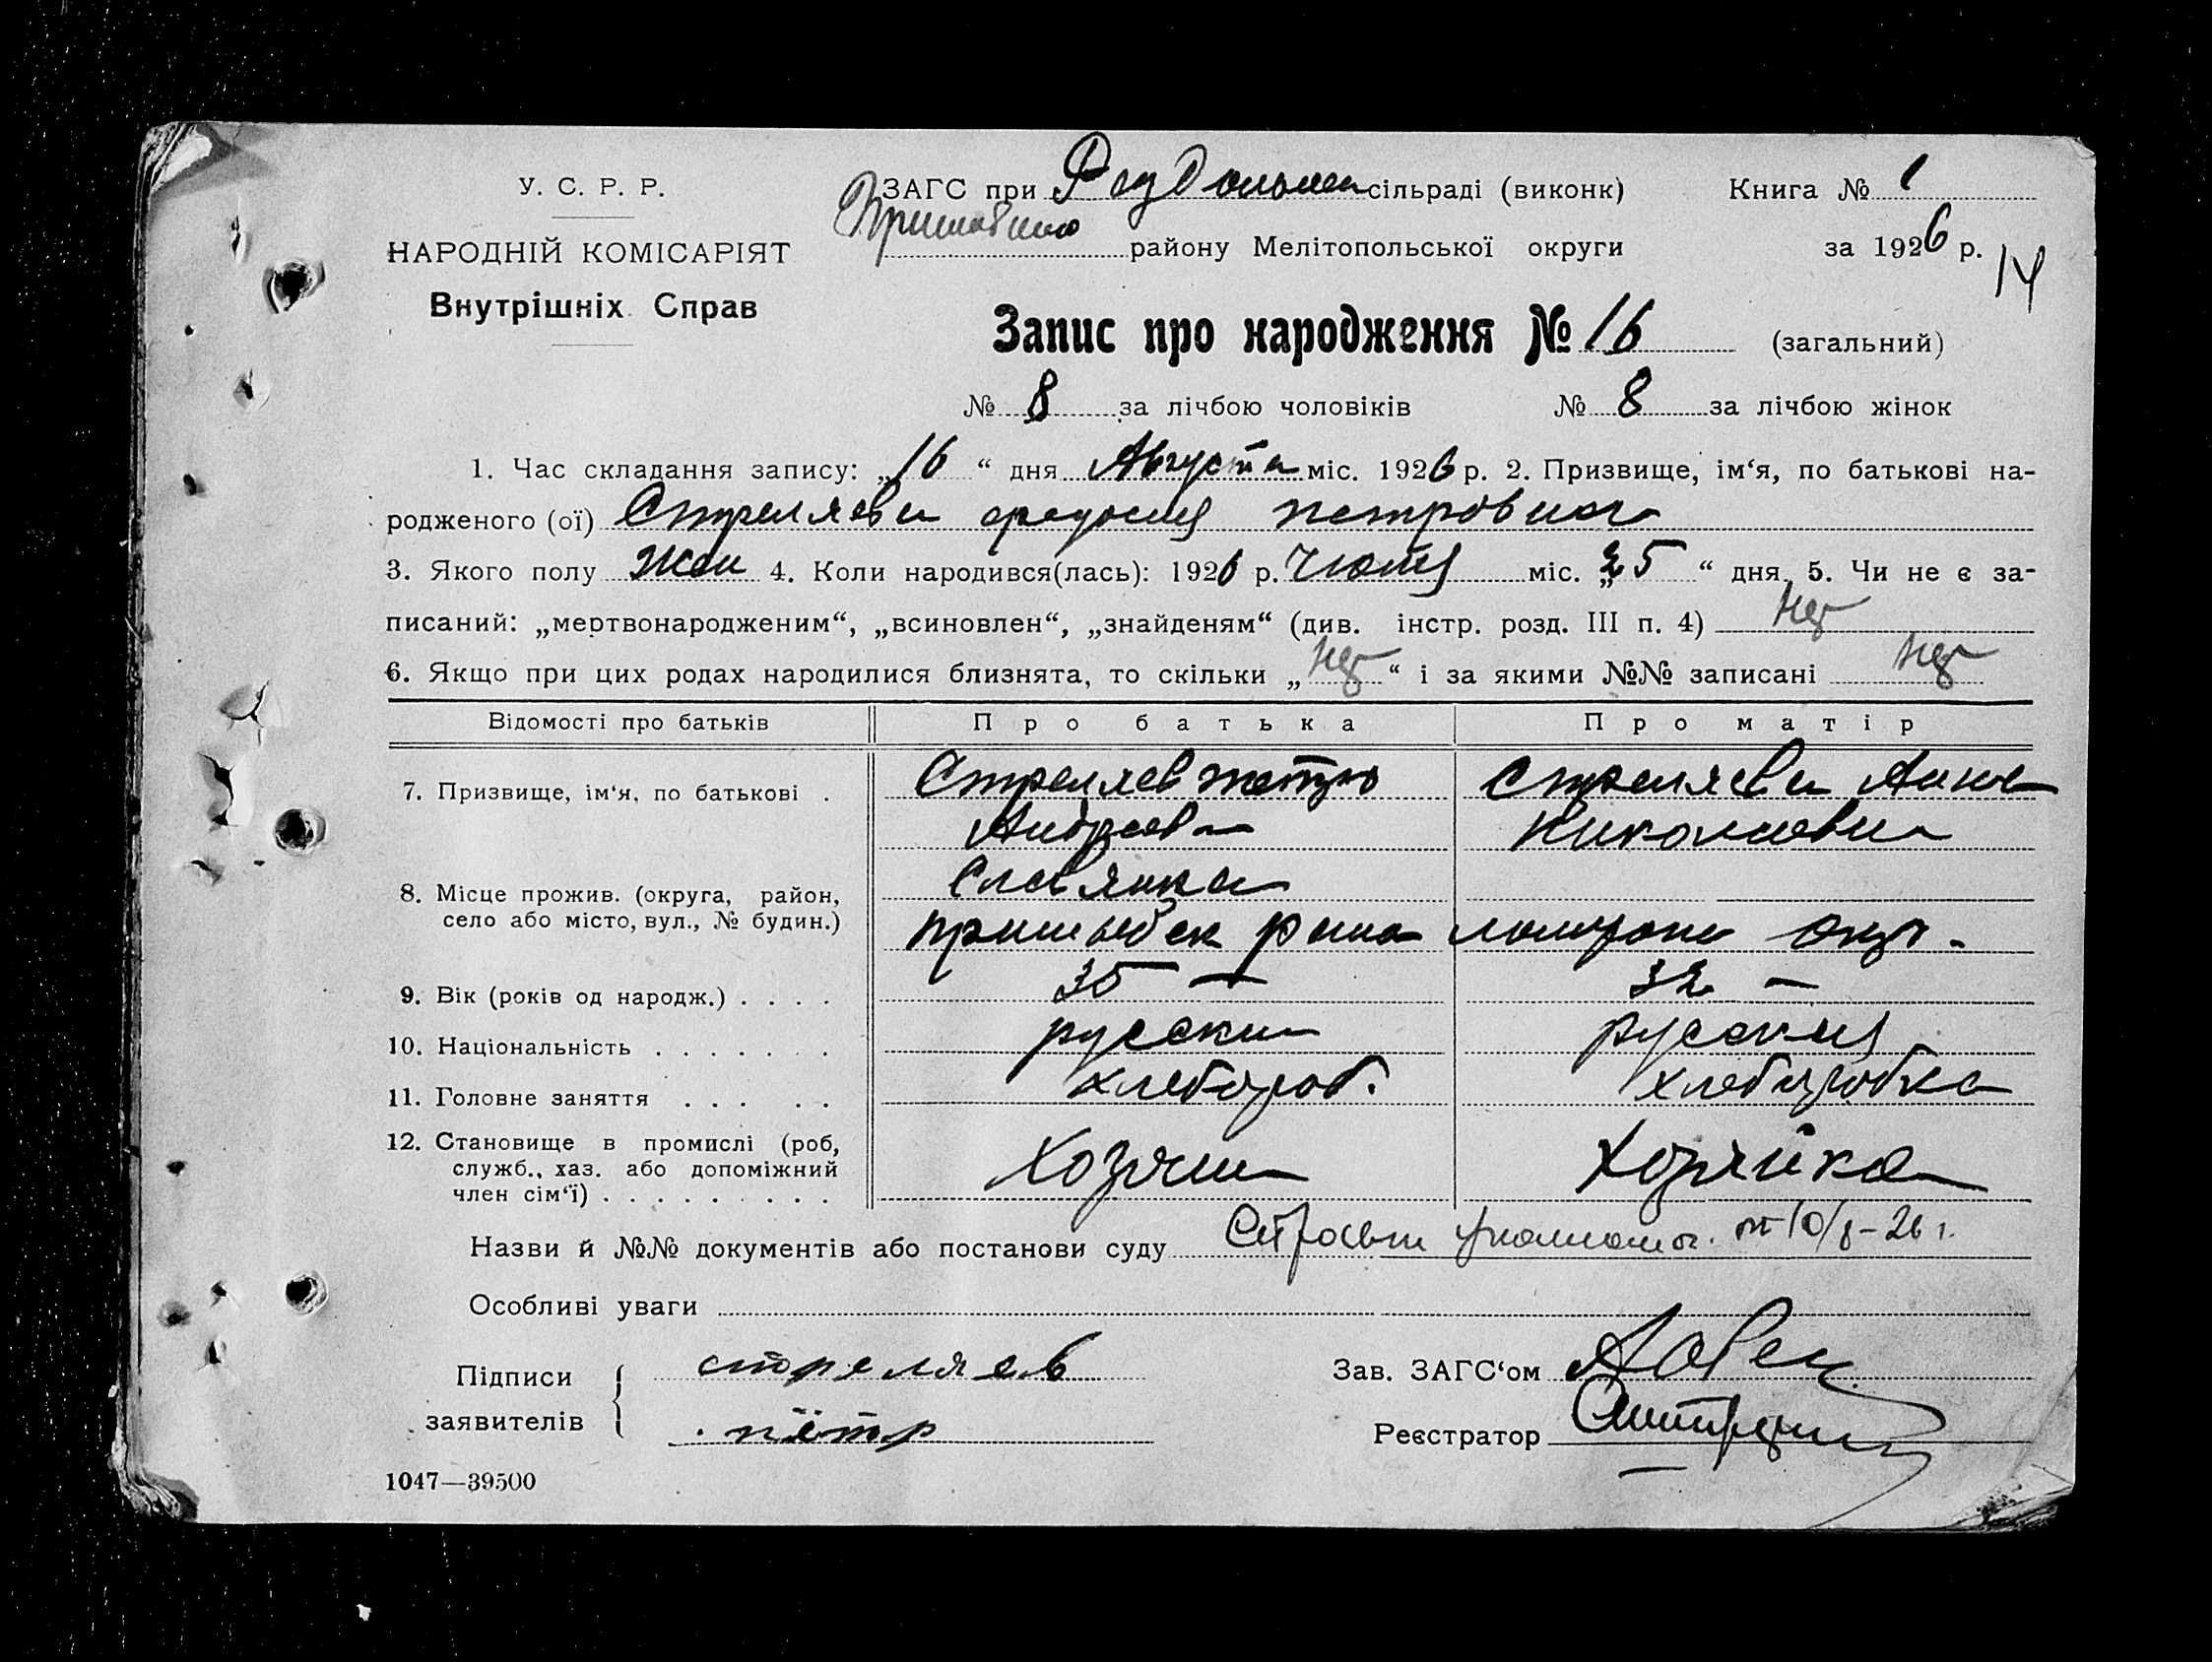 У. С. Р. Р.
НАРОДНІЙ КОМІСАРІЯТ
Внутрішніх Справ
ЗАГС при сільраді (виконк) Книга № 1
району Мелітопольської округи за 1926 р.
14
Запис про народження № 16 (загальний)
№ 8 за лічбою чоловіків № 8 за лічбою жінок
1. Час складання запису: „16“ дня Августа міс. 1926 р. 2. Призвище, ім‘я, по батькові на-
родженого (ої) Стреляева Петровна
3. Якого полу Жен 4. Коли народився(лась): 1926 р. міс. „25“ дня. 5. Чи не є за-
писаний: „мертвонародженим“, „всиновлен“, „знайденям“ (див. інстр. розд. III п. 4)
6. Якщо при цих родах народилися близнята, то скільки „ “ і за якими №№ записані
Відомості про батьків Про батька Про матір
7. Призвище, ім‘я, по батькові . Стреляев Стреляева Анна
Андреев Николаевна
8. Місце прожив. (округа, район, Славянка
село або місто, вул., № будин.) окр.
9. Вік (років од народж.) . . . . 35 — 32 —
10. Національність . . . . . . . русский русская
11. Головне заняття . . . . . хлебороб. хлеборобка
12. Становище в промислі (роб,
служб., хаз. або допоміжний Хозяин Хозяйка
член сім‘ї) . . . . . . . . .
Назви й №№ документів або постанови суду от 10/8-26 г.
Особливі уваги
Підписи стреляев Зав. ЗАГС‘ом
заявителів пётр Реєстратор
1047—39500